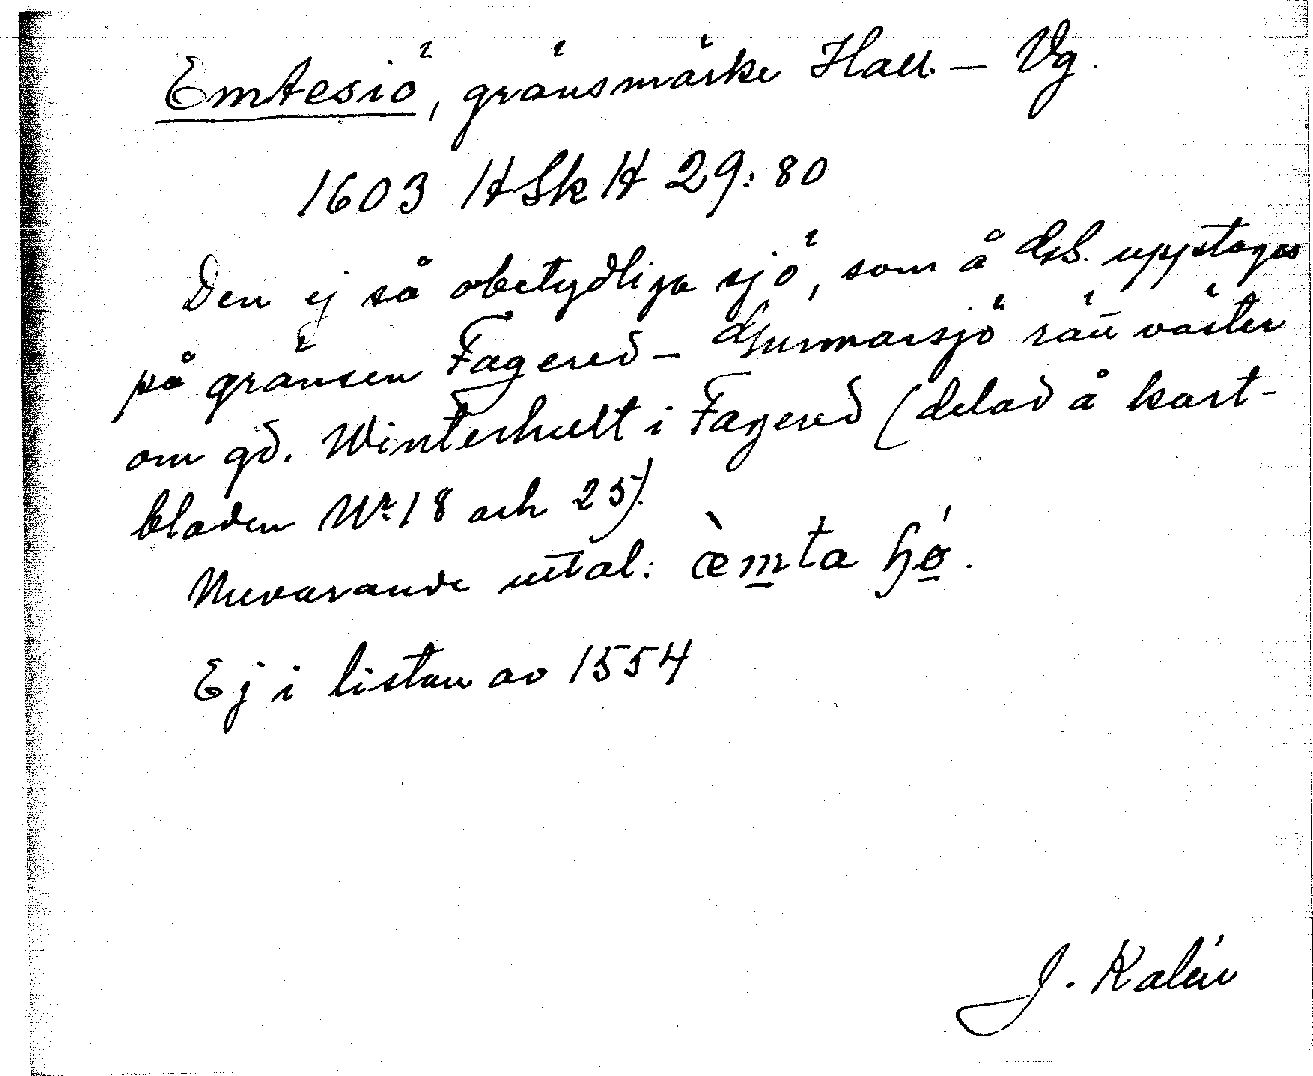 Emtesiö, gränsmärke Hall. – Vg.
1603 HSkH 29:80
Den ej så obetydliga sjö, som å GS. upptages
på gränsen Fagered – Gunnarsjö rätt väster
om gd. Winterhult i Fagered (delad å kart-
bladen Nr 18 och 25).
Nuvarande uttal: æ̀m̲ta ɧǿ̲.
Ej i listan av 1554
J. Kalén